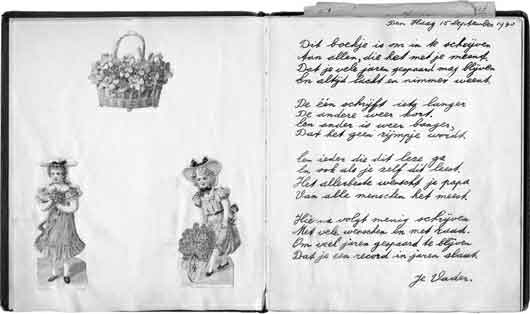 Den Haag 15 September 1940
Dit boekje is om in te schrijven
Aan allen, die het met je meent.
Dat je vele jaren gespaard mag blijven
En altijd lacht en nimmer weent.
De één schrijft iets langer
De andere weer kort.
Een ander is weer banger,
Dat het geen rijmpje wordt.
En ieder die dit leze ga
En ook als je zelf dit leest.
Het allerbeste wenscht je papa
Van alle menschen het meest.
Hierna volgt menig schrijven
Met vele wenschen en met
Om veel jaren gespaard te blijven
Dat je een record in jaren slaat
Je Vader.